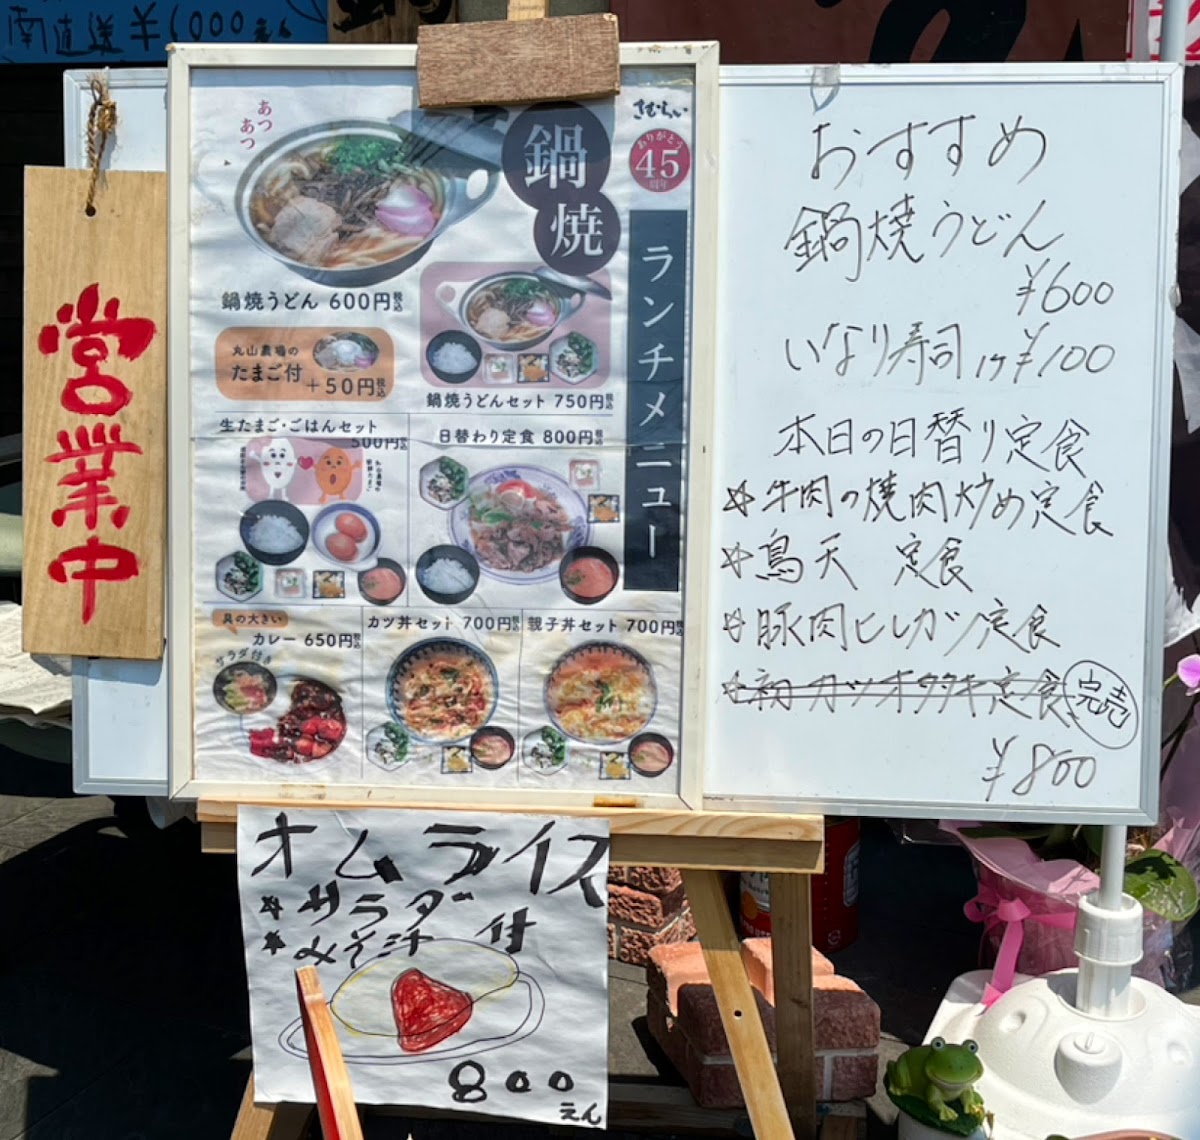 南直送¥1000えん
営業中
あつ
あつ
鍋焼
きむらい
ありがとう
45
周年
ランチメニュー
鍋焼うどん 600円税込
丸山農場の
たまご付 +50円税込
鍋焼うどんセット 750円税込
生たまご・ごはんセット
500円税込
日替わり定食 800円税込
具の大きい
カレー 650円税込
サラダ付き
カツ丼セット 700円税込
親子丼セット 700円税込
おすすめ
鍋焼うどん
¥600
いなり寿司 1ケ¥100
本日の日替り定食
☆牛肉の焼肉炒め定食
☆鳥天 定食
☆豚肉ヒレカツ定食
☆初カツオタタキ定食 完売
¥800
オムライス
★サラダ
★みそ汁 付
800
えん